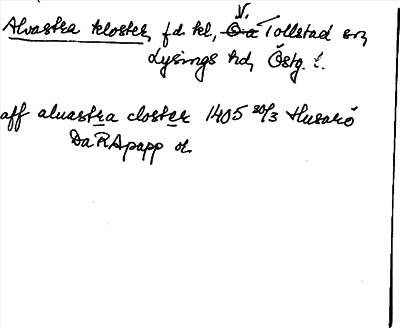 Alvastra kloster, f.d. kl, V. Tollstad sn,
Lysings hd, Östg. l.
aff aluastra closter 1405 30/3 Husarö
DaRApapp or.